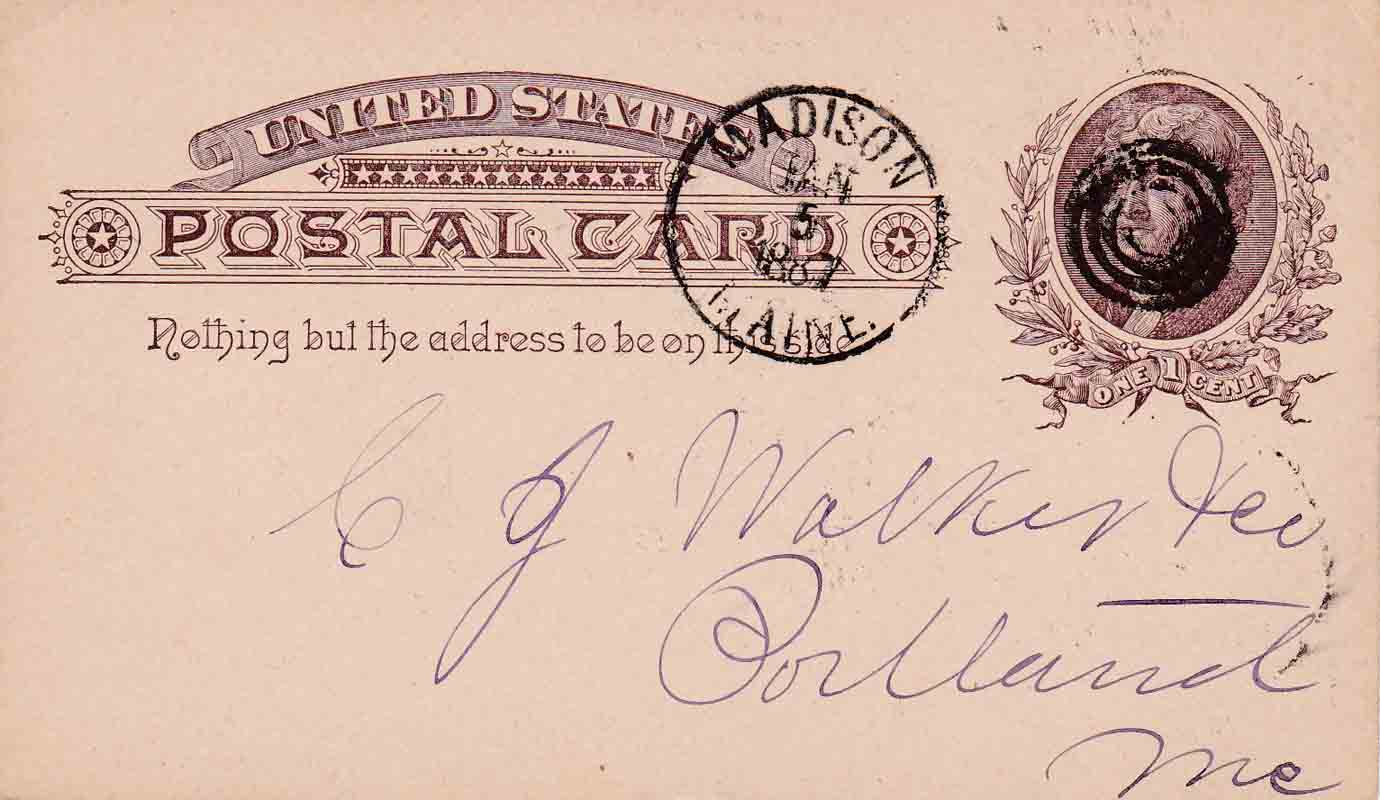 UNITED STATES
POSTAL CARD
Nothing but the address to be on this side
MADISON
JAN
5
1887
MAINE.
ONE 1 CENT
C J Walker &Co
Portland
Me